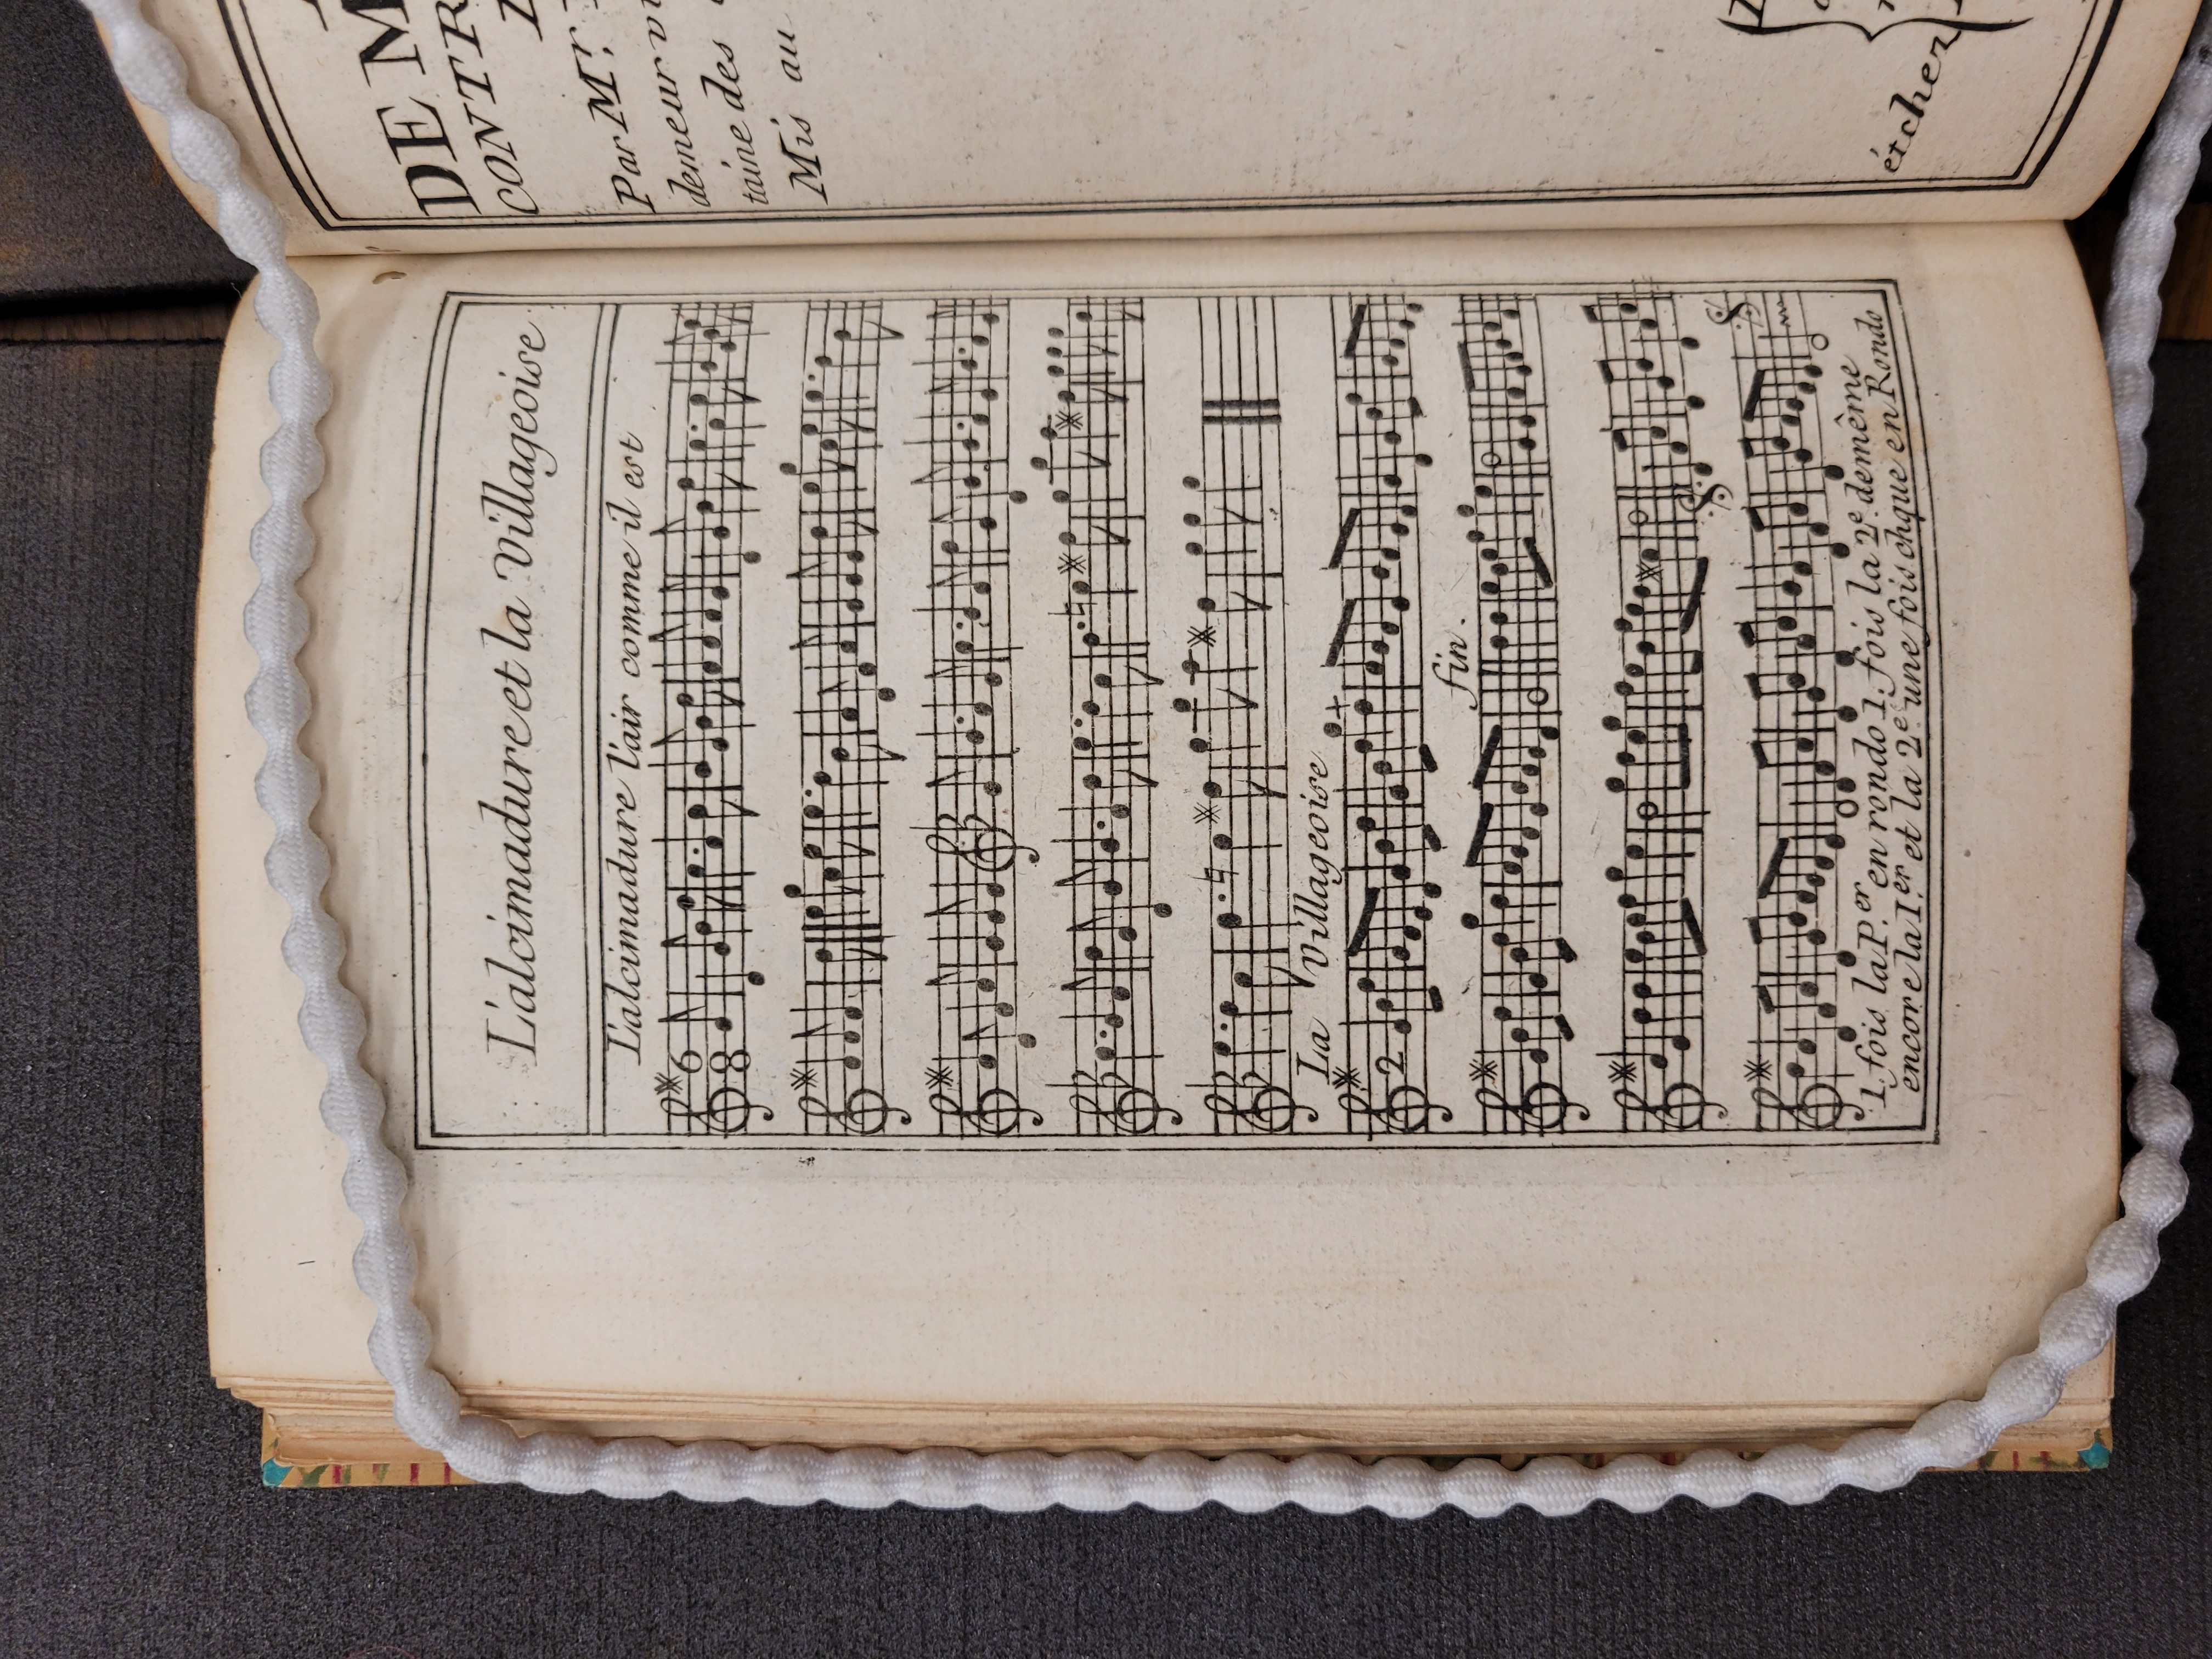 DE M
CONTR
Par Mr.
demeur
taine des
Mis au
et chez
L'alcimadure et la Villageoise
L'alcimadure l'air comme il est
6
8
La Villageoise
2
fin.
1. fois la Per en rondo 1. fois la 2e de même
encore la 1er et la 2e une fois chque en Rondo